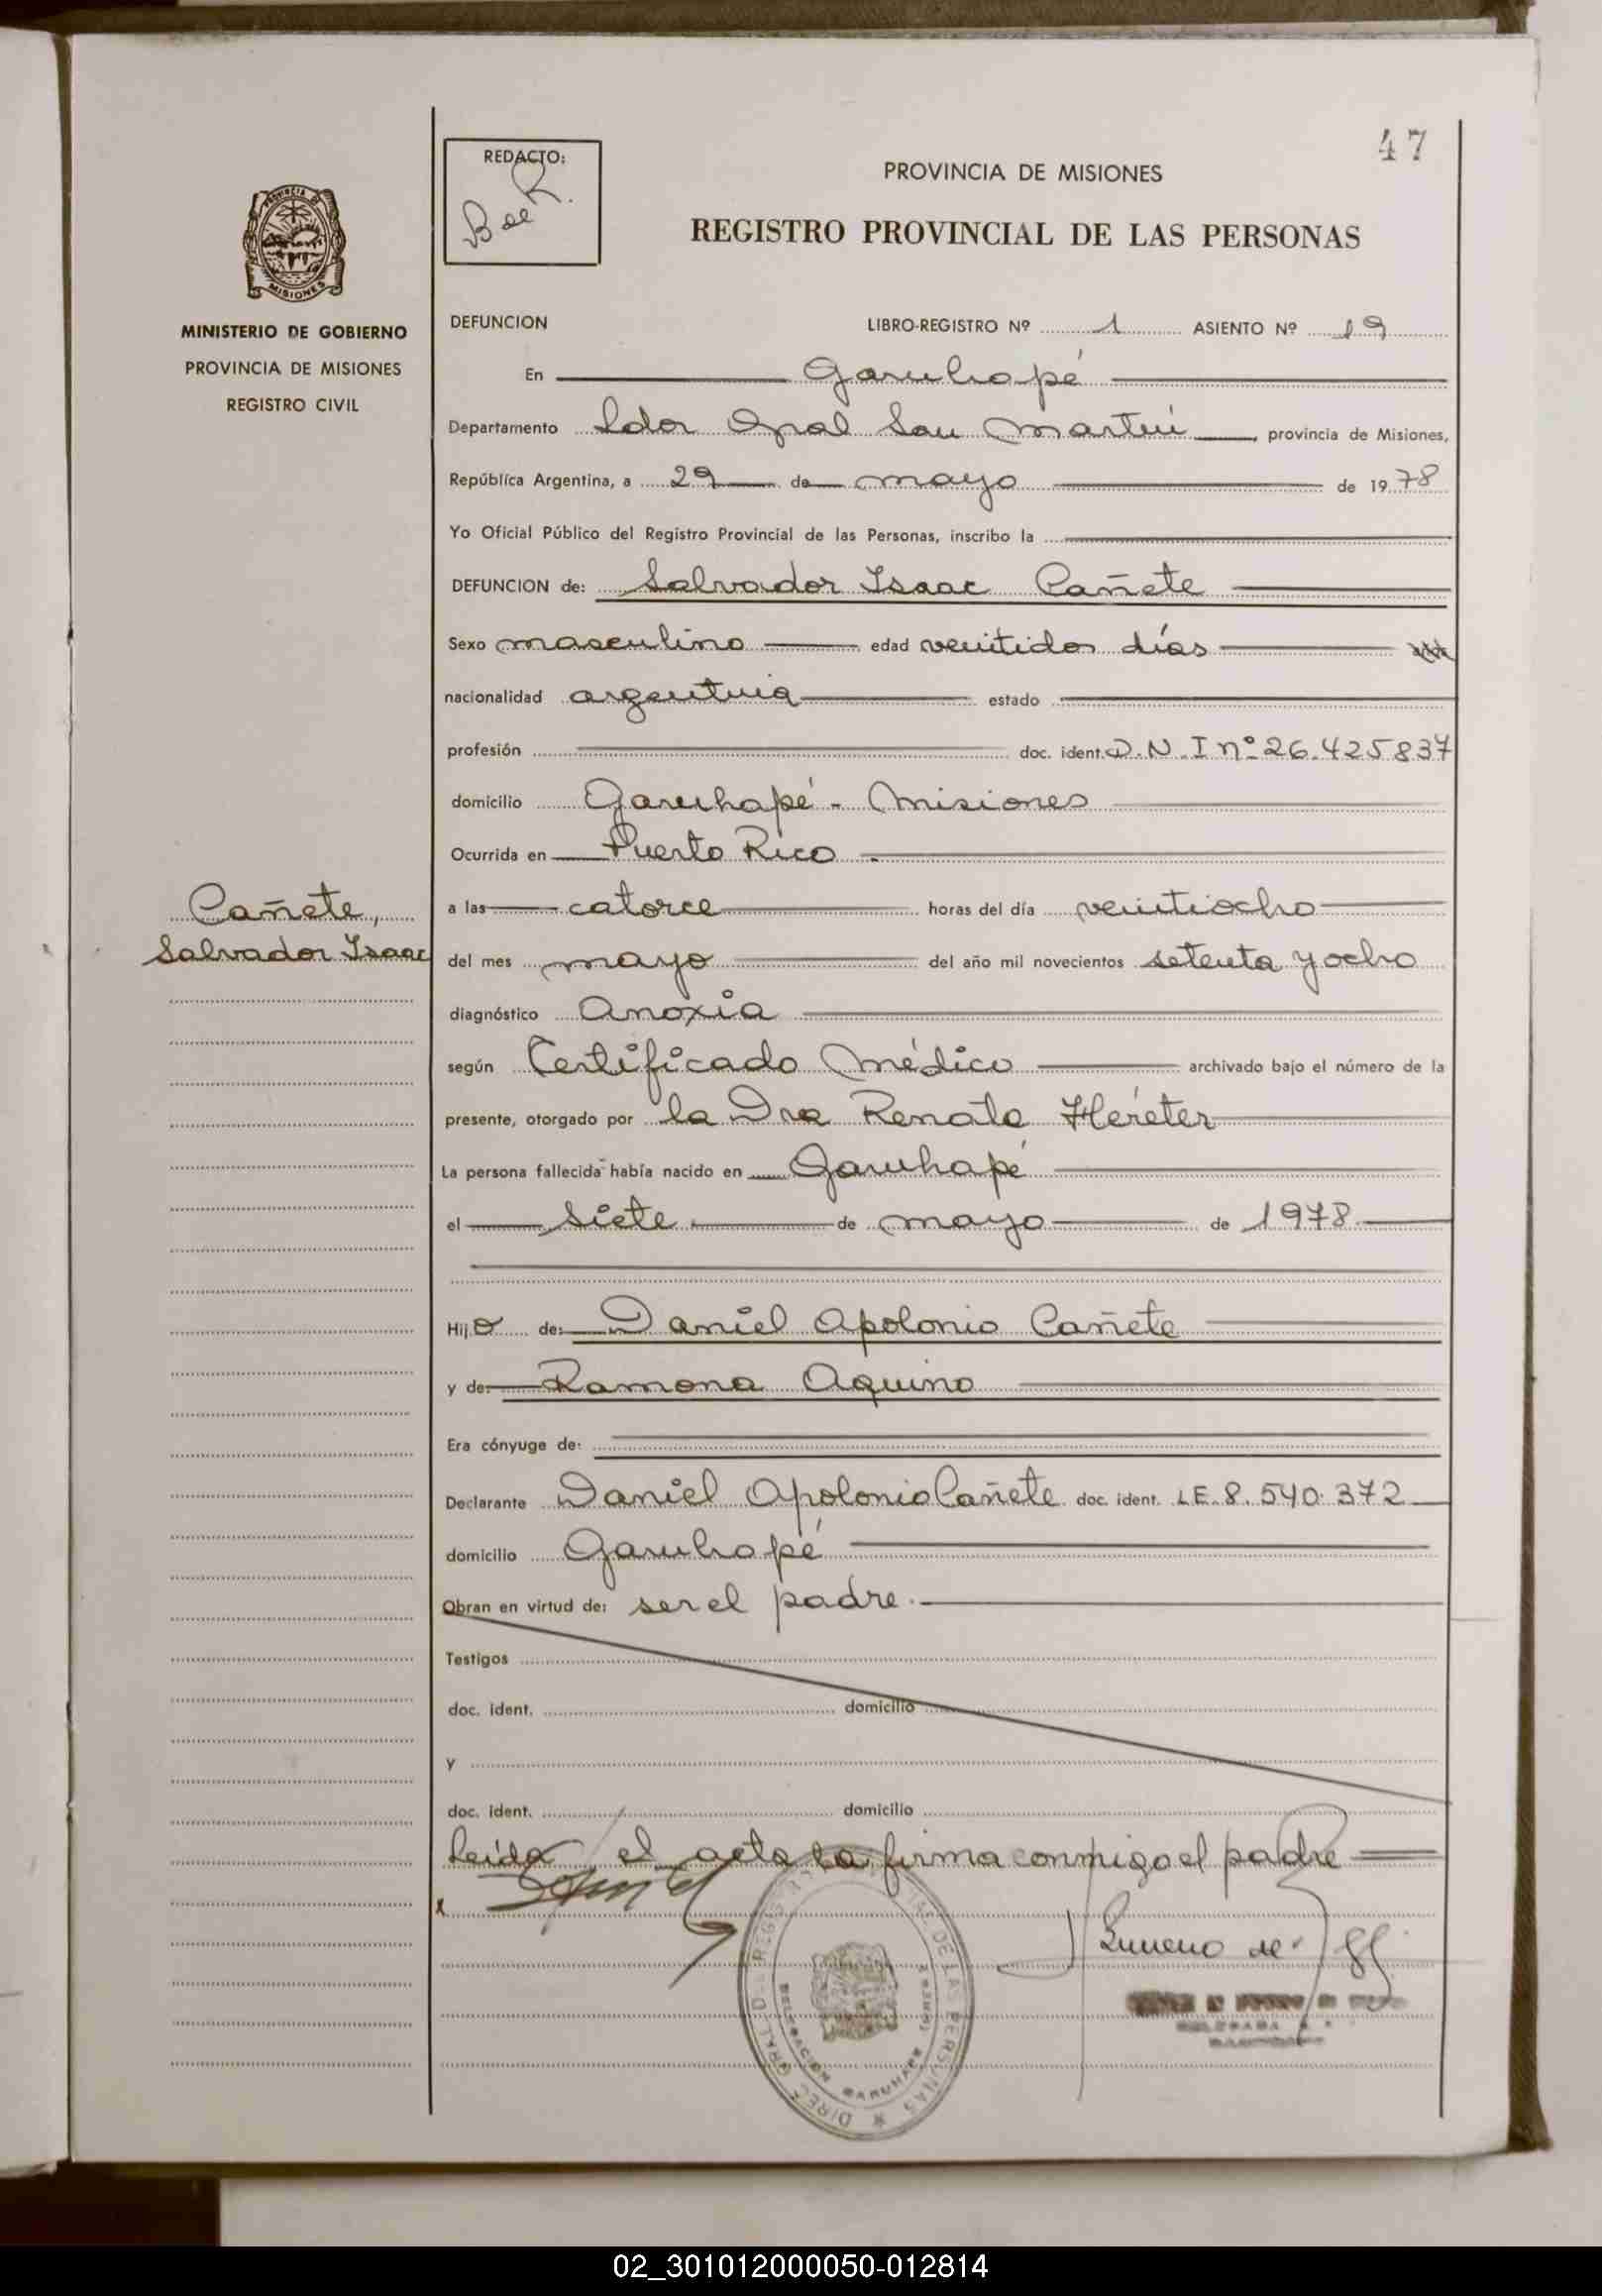 47
REDACTO:
B de R.
PROVINCIA DE MISIONES
REGISTRO PROVINCIAL DE LAS PERSONAS
MISIONES
MINISTERIO DE GOBIERNO
PROVINCIA DE MISIONES
REGISTRO CIVIL
DEFUNCION LIBRO-REGISTRO Nº 1 ASIENTO Nº 19
En Garuhapé
Departamento Ldor Gral San Martín, provincia de Misiones,
República Argentina, a 29 de mayo de 1978
Yo Oficial Público del Registro Provincial de las Personas, inscribo la
DEFUNCION de: Salvador Isaac Cañete
Sexo masculino edad veintidos días
nacionalidad argentina estado
profesión doc. ident. D.N.I nº 26.425837
domicilio Garuhapé - Misiones
Ocurrida en Puerto Rico
Cañete,
Salvador Isaac
a las catorce horas del día veintiocho
del mes mayo del año mil novecientos setenta y ocho
diagnóstico Anoxia
según Certificado Médico archivado bajo el número de la
presente, otorgado por la Dra Renata Héreter
La persona fallecida había nacido en Garuhapé
el siete de mayo de 1978
Hijo de: Daniel Apolonio Cañete
y de: Ramona Aquino
Era cónyuge de:
Declarante Daniel Apolonio Cañete doc. ident. LE. 8. 540. 372
domicilio Garuhapé
Obran en virtud de: ser el padre.
Testigos
doc. ident. domicilio
y
doc. ident. domicilio
Leida el acta la firma conmigo el padre
x
DELEGACION GARUHAPE
02_301012000050-012814